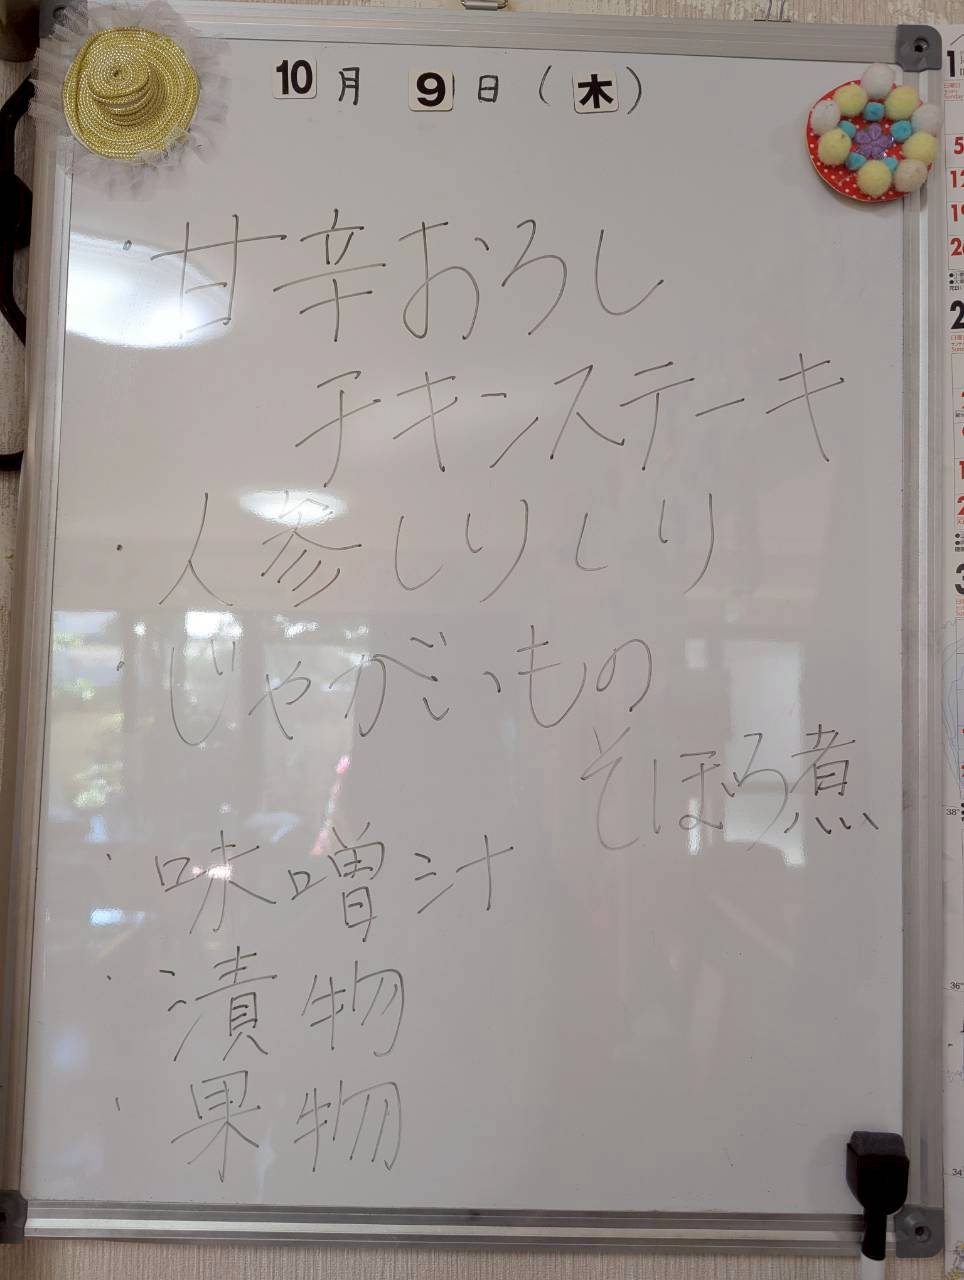 10月 9日(木)
・甘辛おろし
チキンステーキ
・人参しりしり
・じゃがいもの
そぼろ煮
・味噌汁
・漬物
・果物
1
5
12
19
26
2
3
38°
36°
34°